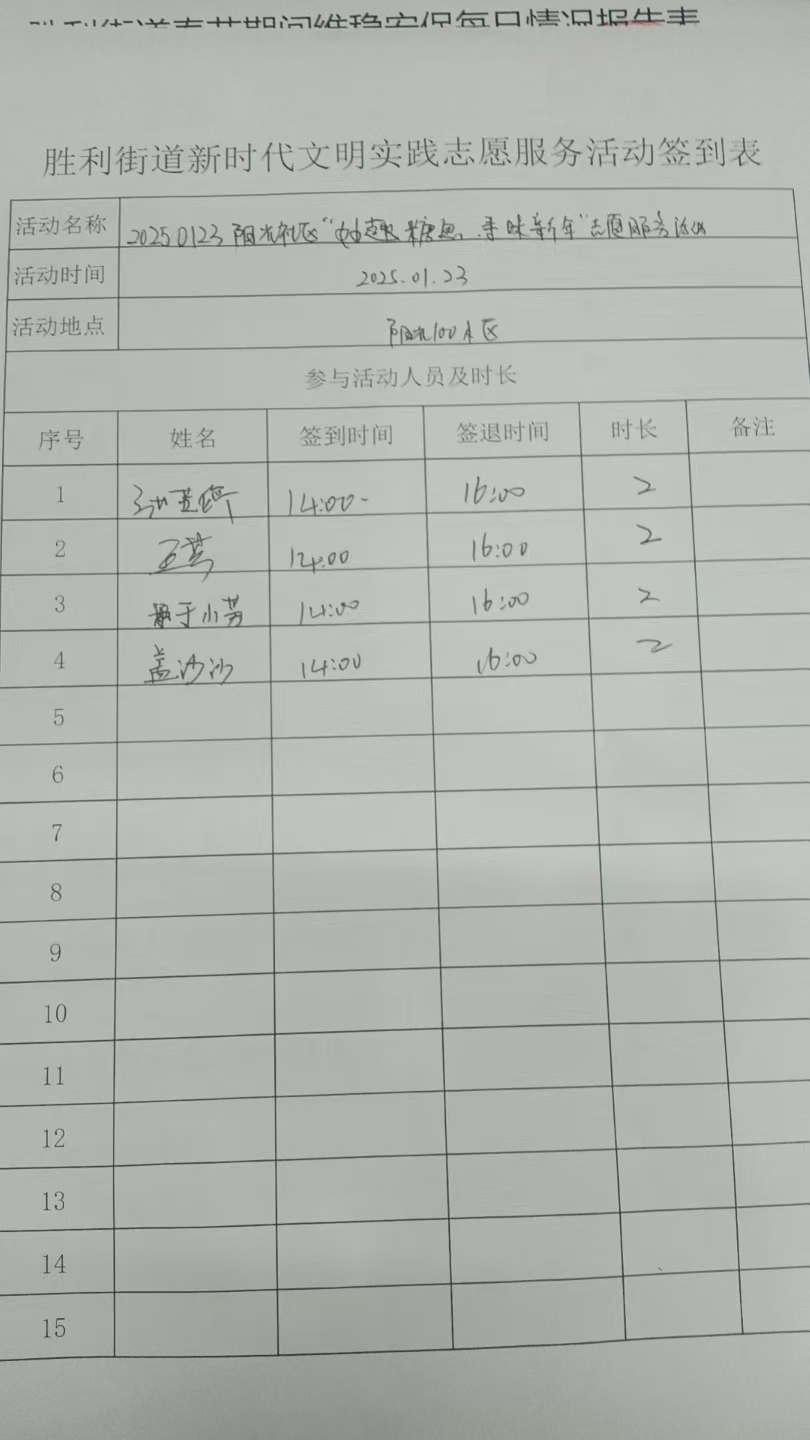 胜利街道春节期间维稳安保每日情况报告表
胜利街道新时代文明实践志愿服务活动签到表
活动名称 20250123 阳光社区“妙趣糖画，寻味新年”志愿服务活动
活动时间 2025.01.23
活动地点 阳光100小区
参与活动人员及时长
序号 姓名 签到时间 签退时间 时长 备注
1 14:00 16:00 2
2 王营 14:00 16:00 2
3 于小芳 14:00 16:00 2
4 盖沙沙 14:00 16:00 2
5
6
7
8
9
10
11
12
13
14
15